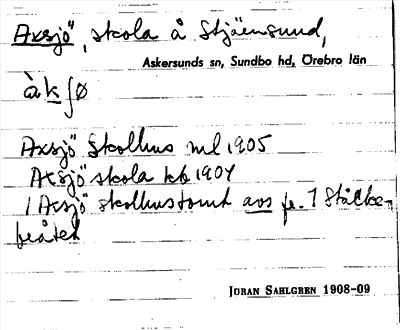 Axsjö, skola å Stjärnsund,
Askersunds sn, Sundbo hd, Örebro län
àkʃø
Axsjö Skolhus ml 1905
Axsjö skola kb 1904
1 Axsjö skolhustomt avs fr. 1
JÖRAN SAHLGREN 1908-09